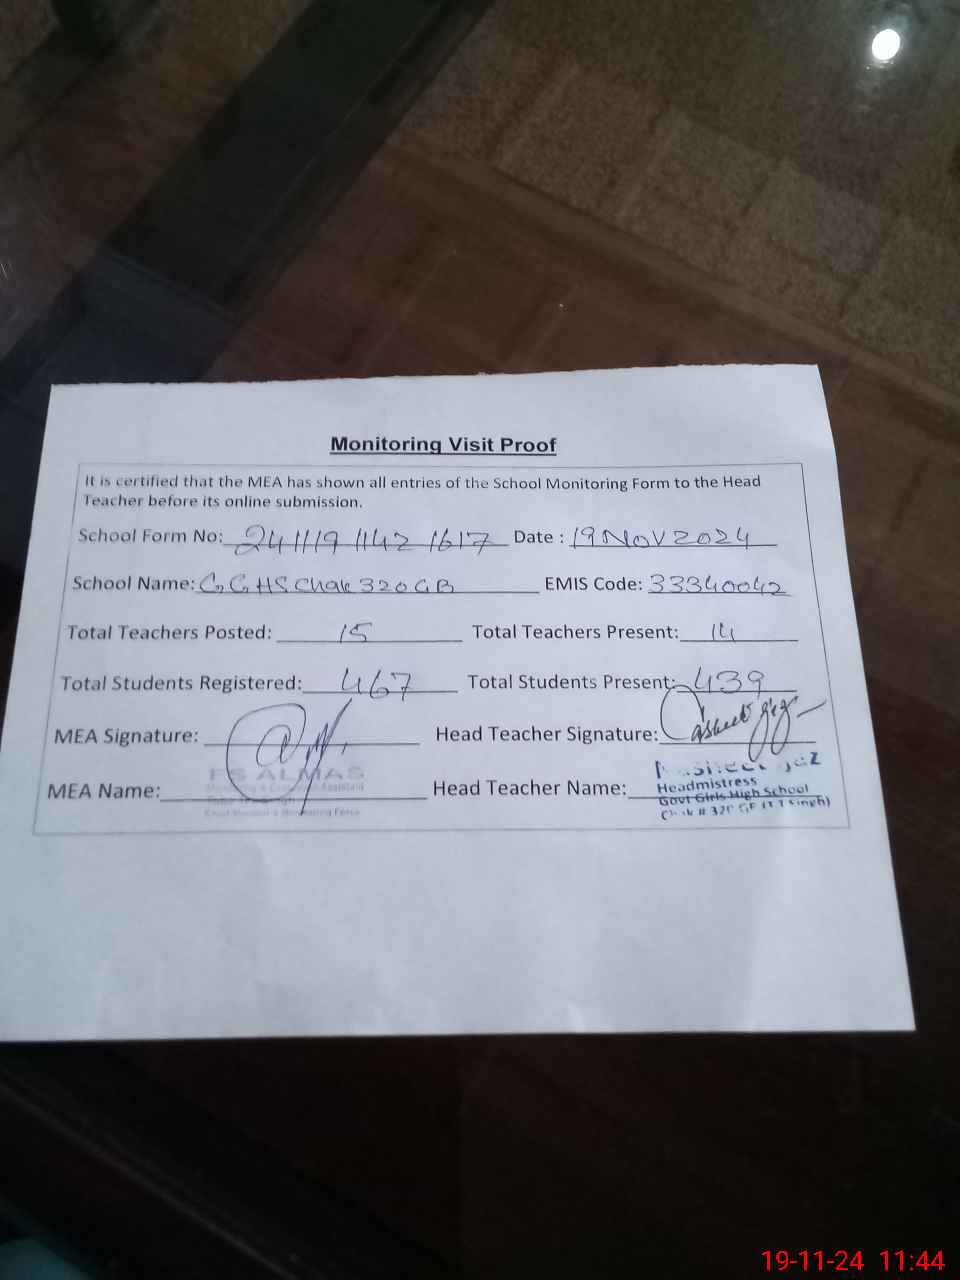 Monitoring Visit Proof
It is certified that the MEA has shown all entries of the School Monitoring Form to the Head
Teacher before its online submission.
School Form No: 241119 1142 1617 Date : 19 Nov 2024
School Name: GGHS Chak 320 GB EMIS Code: 33340042
Total Teachers Posted: 15 Total Teachers Present: 14
Total Students Registered: 467 Total Students Present: 439
MEA Signature: Head Teacher Signature:
MEA Name: ALMAS Head Teacher Name:
Headmistress
Govt Girls High School
19-11-24 11:44